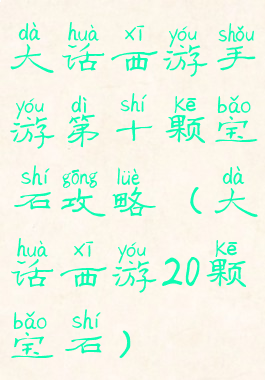 dà huà xī yóu shǒu
大话西游手
yóu dì shí kē bǎo
游第十颗宝
shí gōng lüè dà
石攻略（大
huà xī yóu kē
话西游20颗
bǎo shí
宝石）